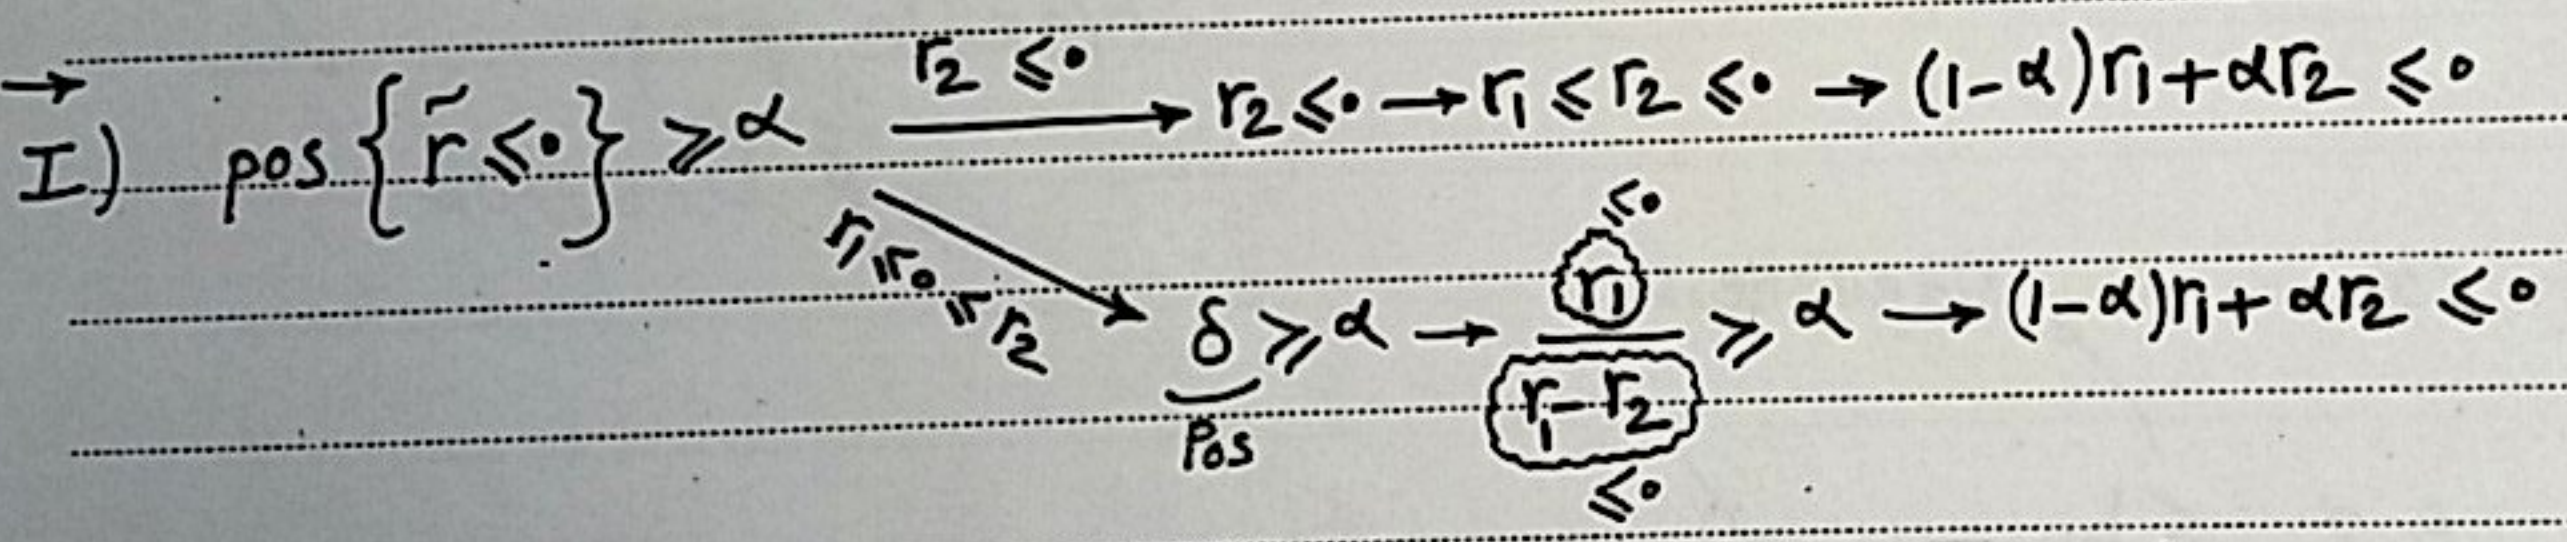 →
I) pos{r̃ ≤ 0} ≥ α   r₂ ≤ 0 → r₂ ≤ 0 → r₁ ≤ r₂ ≤ 0 → (1-α)r₁ + αr₂ ≤ 0
r₁ ≤ 0 ≤ r₂ → δ ≥ α → r₁ / (r₁ - r₂) ≥ α → (1-α)r₁ + αr₂ ≤ 0
≤ 0
Pos
≤ 0